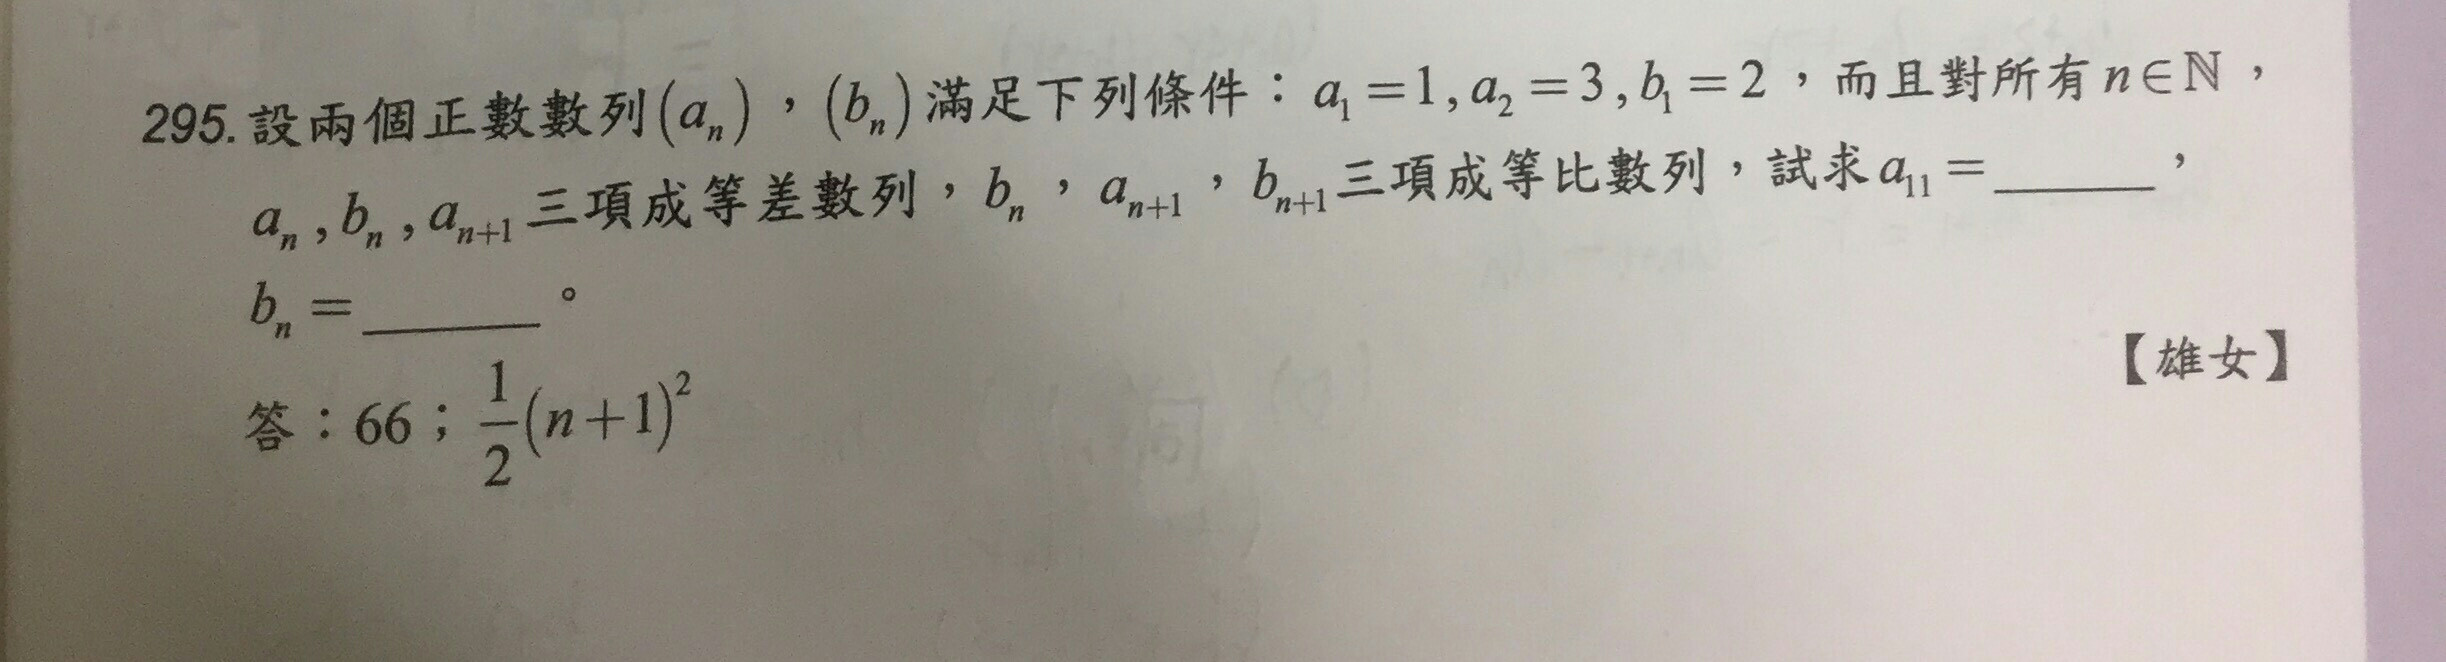 295. 設兩個正數數列(aₙ)，(bₙ)滿足下列條件：a₁=1, a₂=3, b₁=2，而且對所有n∈ℕ，
aₙ, bₙ, aₙ₊₁三項成等差數列，bₙ，aₙ₊₁，bₙ₊₁三項成等比數列，試求a₁₁=______，
bₙ=______。
【雄女】
答：66；1/2(n+1)²